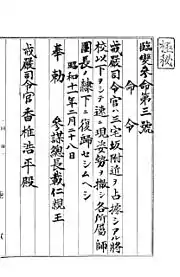 極秘
臨變參命第三號
命令
戒嚴司令官ハ三宅坂附近ヲ占據シアル將
校以下ヲシテ速ニ現姿勢ヲ撤シ各所屬師
團長ノ隷下ニ復歸セシムヘシ
昭和十一年二月二十八日
奉勅 參謀總長載仁親王
戒嚴司令官香椎浩平殿